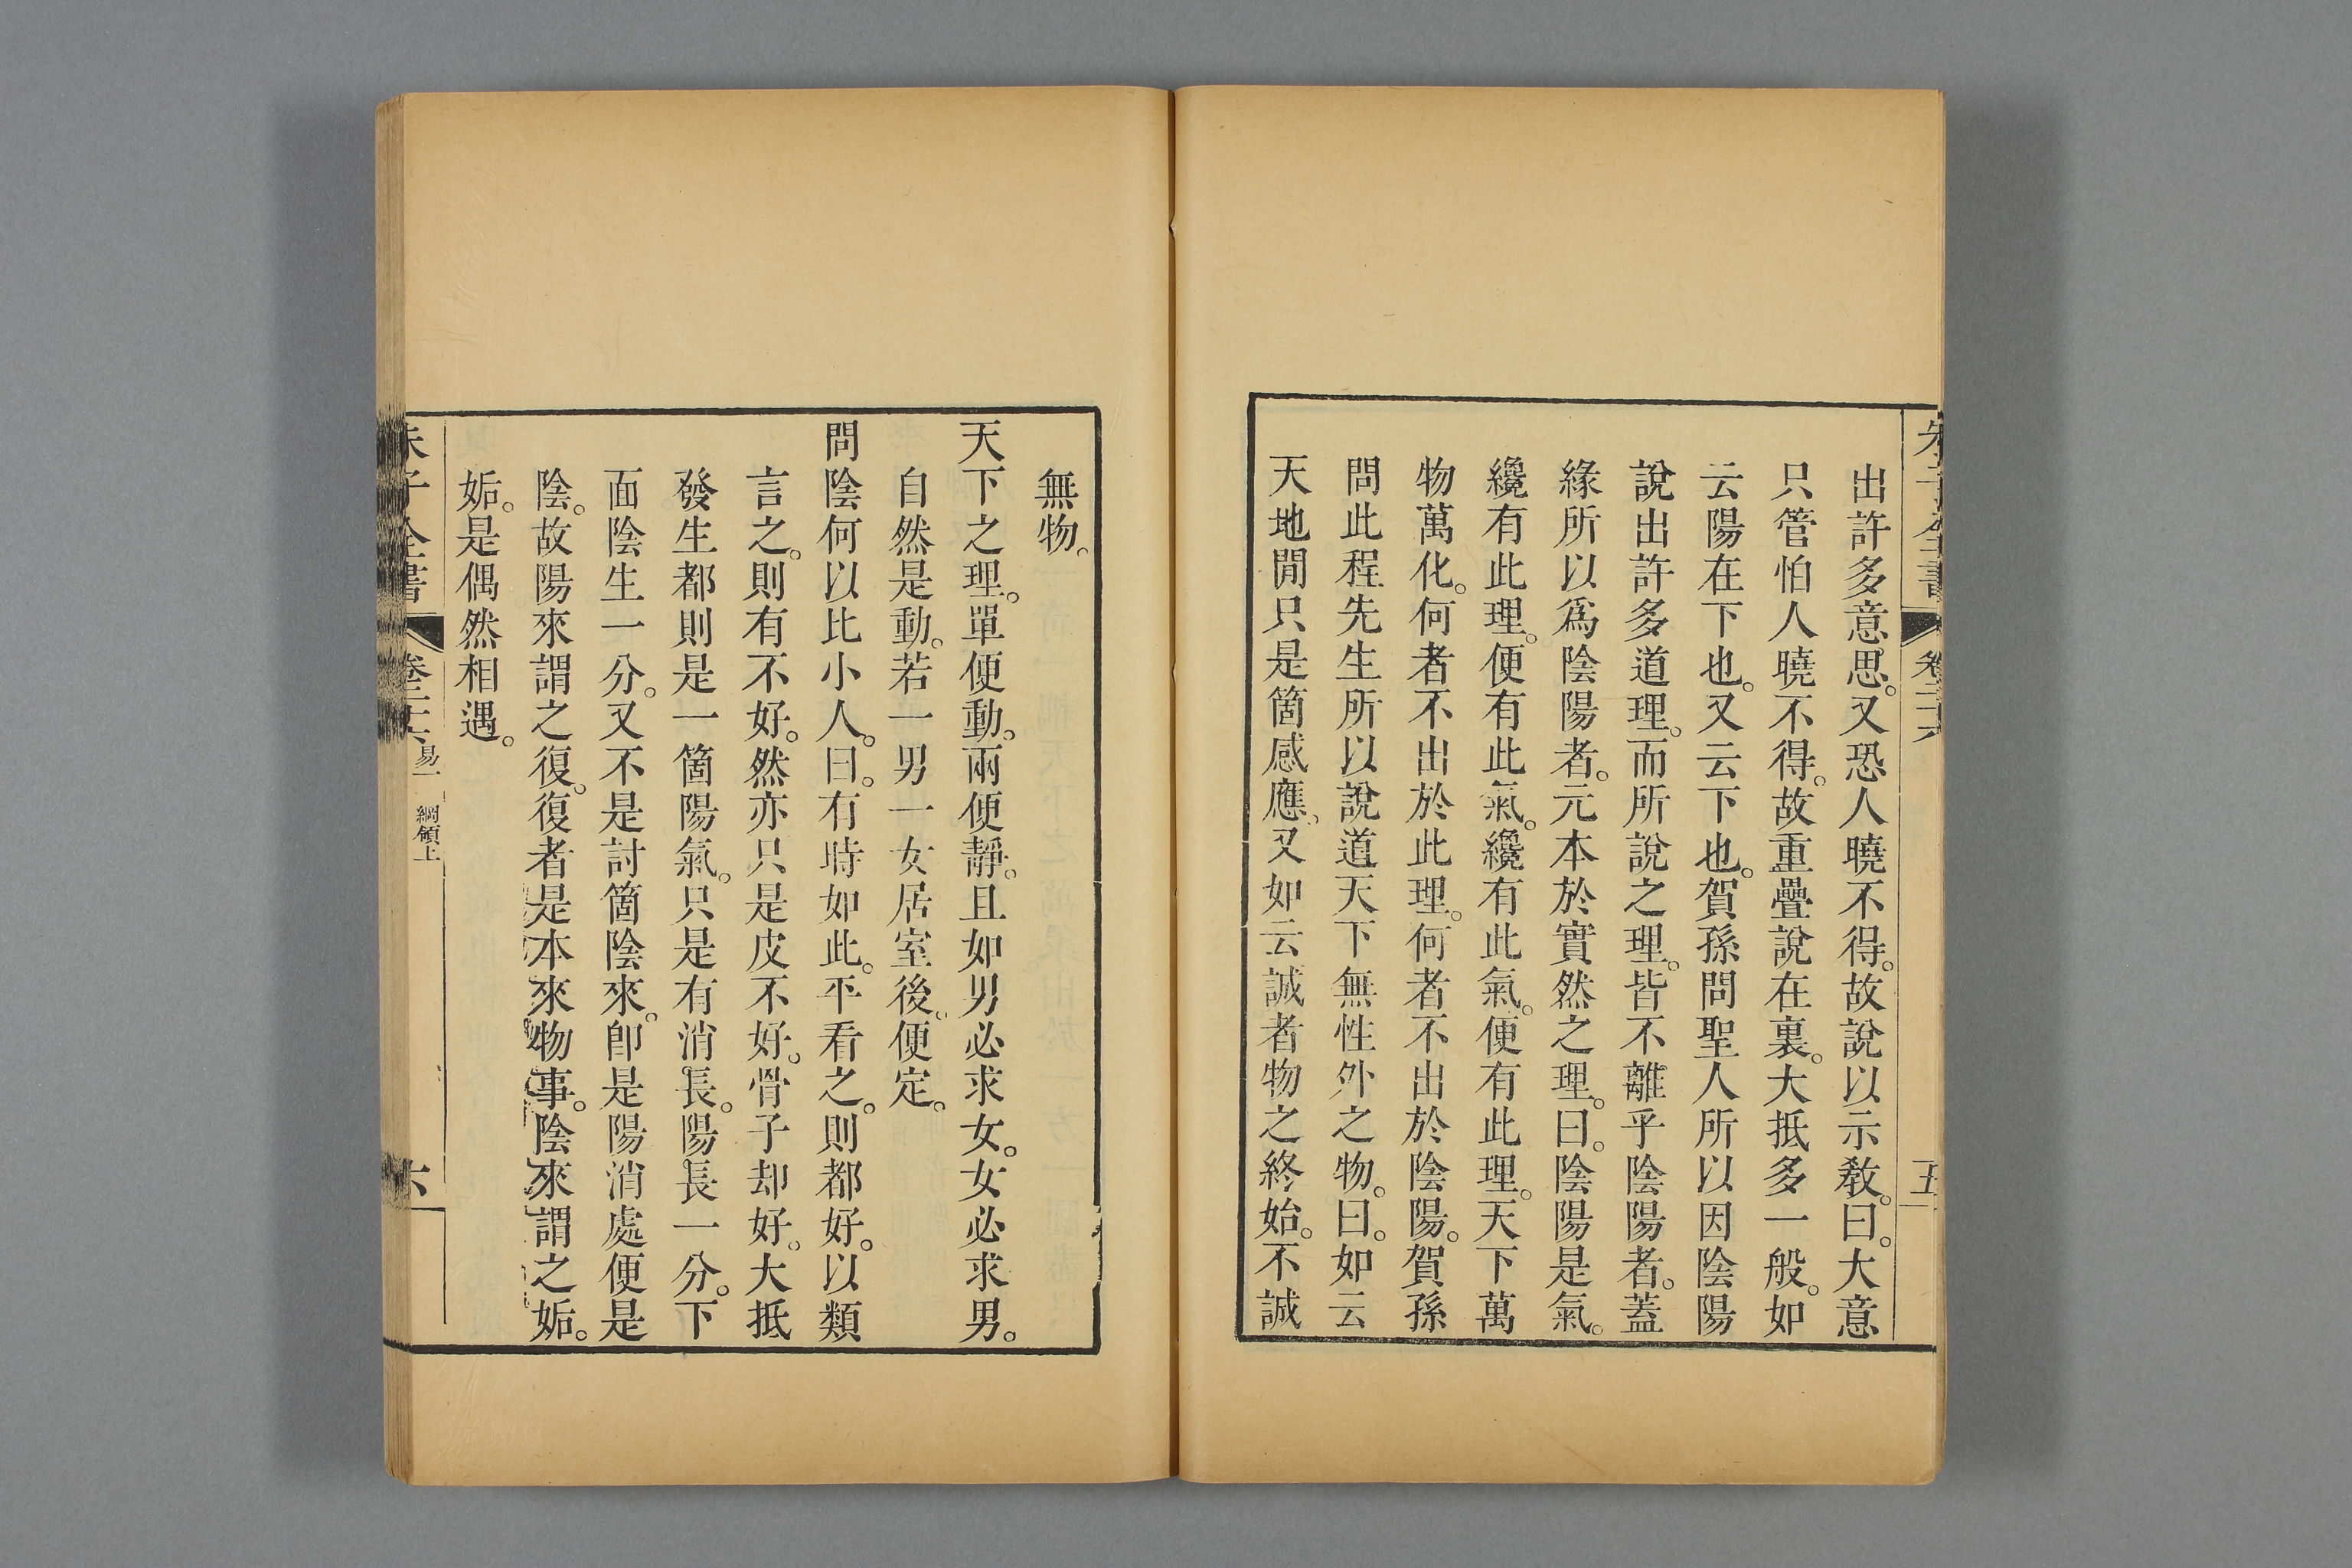 朱子全書 卷二十六 五
出許多意思。又恐人曉不得。故說以示教。曰。大意
只管怕人曉不得。故重疊說在裏。大抵多一般。如
云陽在下也。又云下也。賀孫問聖人所以因陰陽
說出許多道理。而所說之理。皆不離乎陰陽者。蓋
緣所以爲陰陽者。元本於實然之理。曰。陰陽是氣。
纔有此理。便有此氣。纔有此氣。便有此理。天下萬
物萬化。何者不出於此理。何者不出於陰陽。賀孫
問此程先生所以說道天下無性外之物。曰。如云
天地閒只是箇感應。又如云誠者物之終始。不誠
無物。
天下之理。單便動。兩便靜。且如男必求女。女必求男。
自然是動。若一男一女居室後。便定。
問陰何以比小人。曰。有時如此。平看之。則都好。以類
言之。則有不好。然亦只是皮不好。骨子却好。大抵
發生都則是一箇陽氣。只是有消長。陽長一分。下
面陰生一分。又不是討箇陰來。卽是陽消處便是
陰。故陽來謂之復。復者是本來物事。陰來謂之姤。
姤。是偶然相遇。
朱子全書 卷二十六 易一 綱領上 六